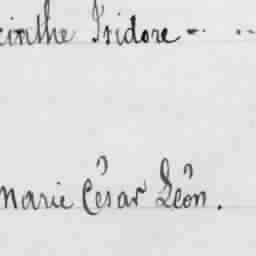 cinthe Isidore - . ..
marie César Léon.